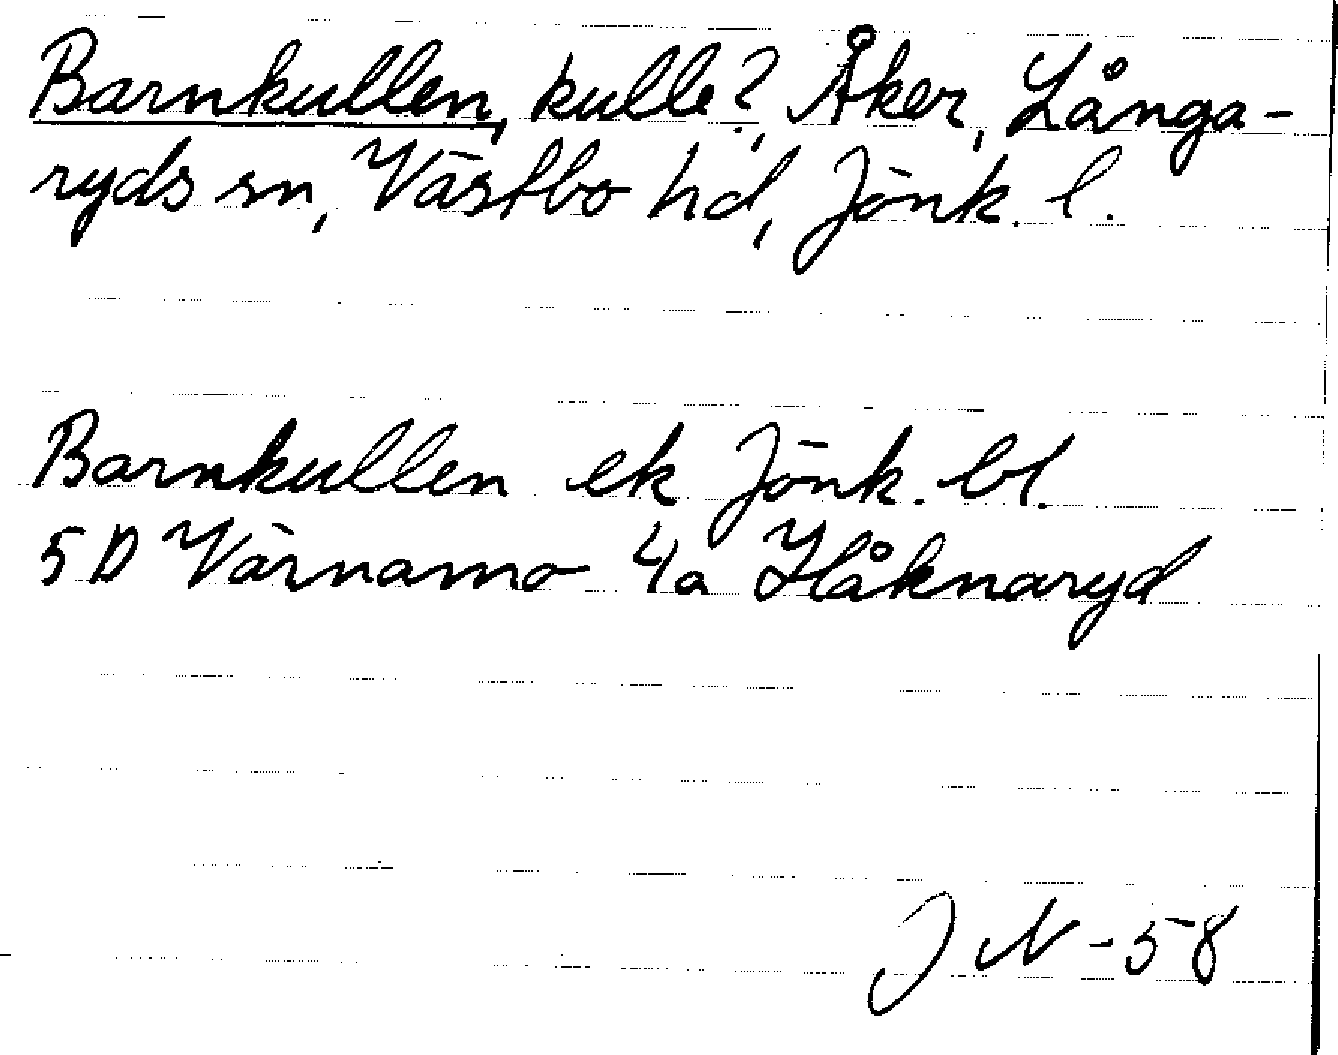 Barnkullen, kulle?, Åker, Långa-
ryds sn, Västbo hd, Jönk. l.
Barnkullen ek Jönk. bl.
5D Värnamo 4a Håknaryd
J N -58